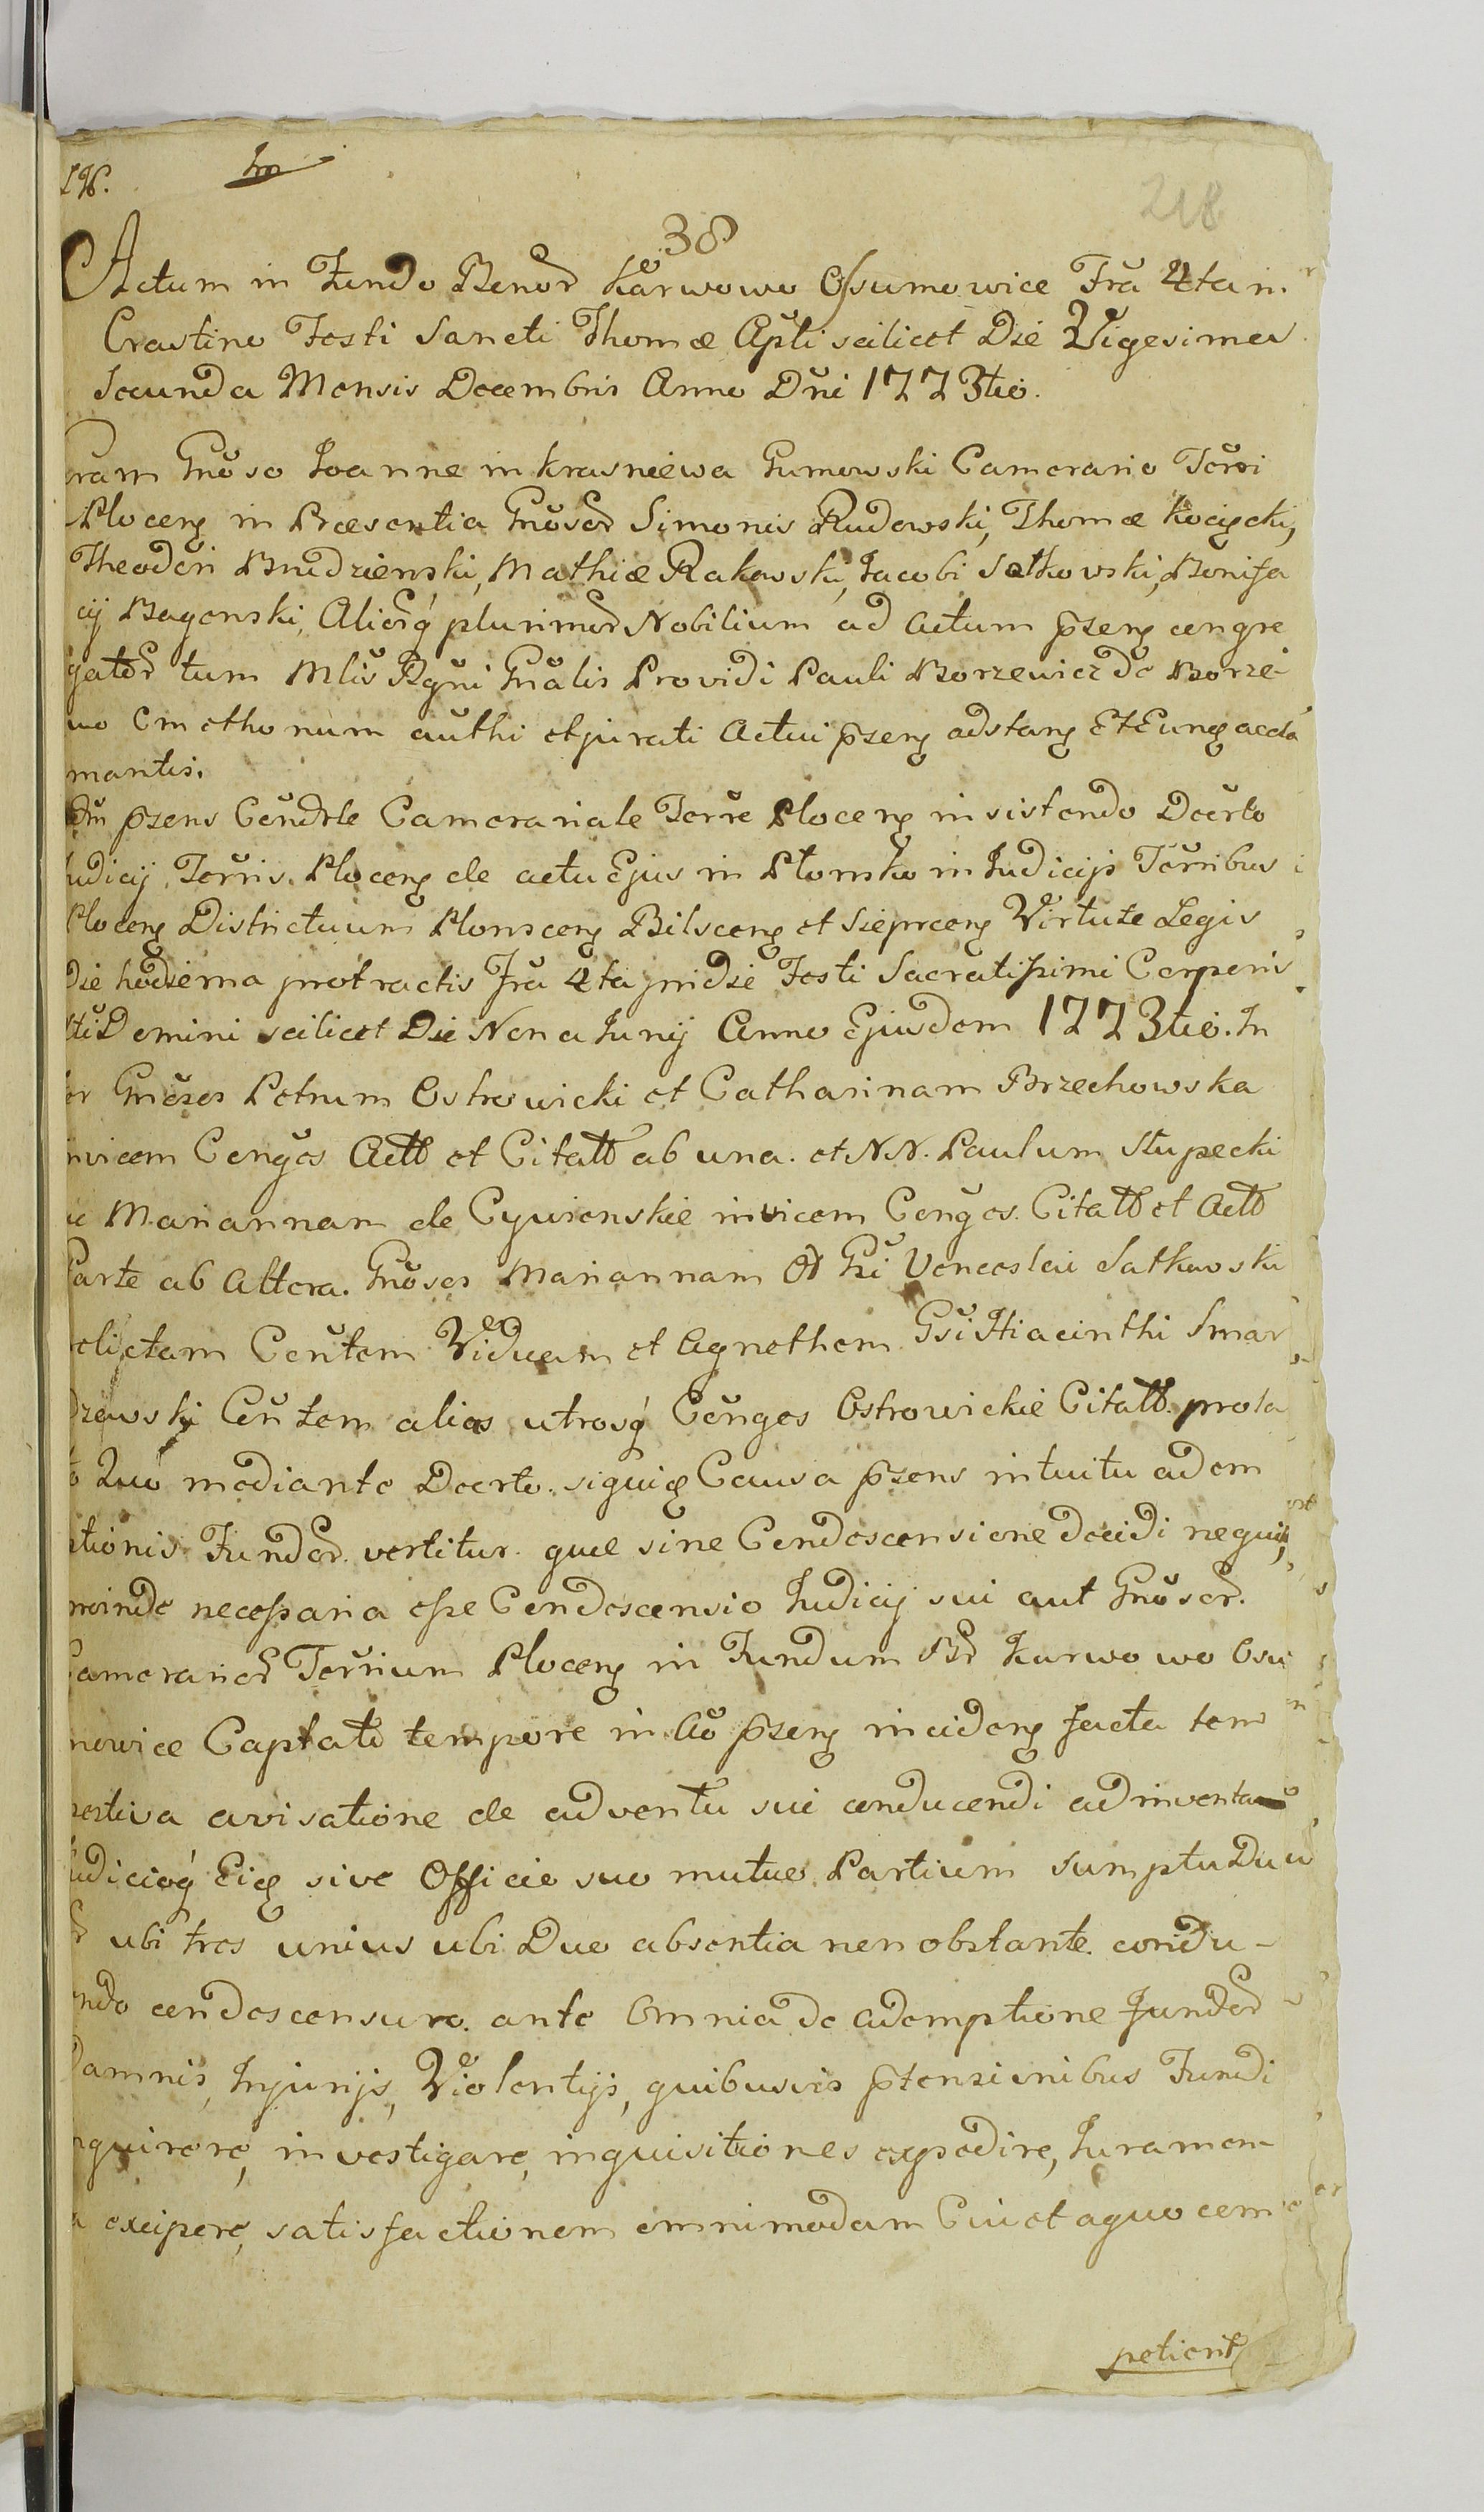 196.
218
38
Actum in Fundo Bonor Karwowo Osumowice Fra 4ta in
Crastino Festi Sancti Thomæ Apli scilicet Die Vigesima
Secunda Mensis Decembris Anno Dni 1773tio.
oram Gnoso Joanne in Krasniewa Gumowski Camerario Terri
Plocen in Præsentia Gnosor Simonis Rudowski, Thomæ Kocięcki,
Theodori Brudzienski, Mathiæ Rakowski, Jacobi Satkowski, Bonifa
cij Bagenski, Aliorq plurimor Nobilium ad actum pzen congre
gator tum Mlis Rgni Gnalis Providi Pauli Borzewicz de Borze-
wo Cmethonum authi et jurati Actui pzen adstan Et Eun accla
mantis.
Dm pzens Condrle Camerariale Terre Plocen insistendo Decrto
udicij Terris. Plocen de actu Ejus in Plonsko in Judicijs Terribus
Plocen Districtuum Plonscen Bilscen et Sieprcen Virtute Legis
Die hodierna protractis Fra 4ta pridie Festi Sacratissimi Corporis
sti Domini scilicet Die Nona Junij Anno Ejusdem 1773tio. In
er Gnosos Petrum Ostrowicki et Catharinam Brzechowska
nvicem Conges Actt et Citatt ab una. et N.N. Paulum Stupecki
ac Mariannam de Cywienskie invicem Conges. Citatt et Actt
Parte ab Altera. Gnosos Mariannam Gsi Venceslai Satkowski
elictam Contem Viduam et Agnethem Gsi Hiacinthi Smar
dzewski Contem alias utrosq Conges Ostrowickie Citatt. prola
o Quo mediante Decrto. siqui Causa pzens intuitu adem
ptionis Fundor. vertitur. quæ sine Condescensione decidi nequit,
proinde necessaria esse Condescensio Judicij sui aut Gnosor.
Camerarior Terrium Plocen in Fundum Br Karwowo Osu
mowice Captato tempore in Ao pzen inciden facta tem
pestiva avisatione de adventu sui conducendi adinventa
udicioq Ei sive Officio suo mutuo Partium Sumptu Duo
r ubi tres unius ubi Duo absentia non obstante. condu-
endo condescensuro. ante Omnia de Ademptione Fundor
Damnis, Injurijs, Violentijs, quibusvis ptensionibus Fundi
nquirere, investigare, inquisitiones expedire, Juramen-
a excipere, satisfactionem omnimodam Cui et a quo com
petierit